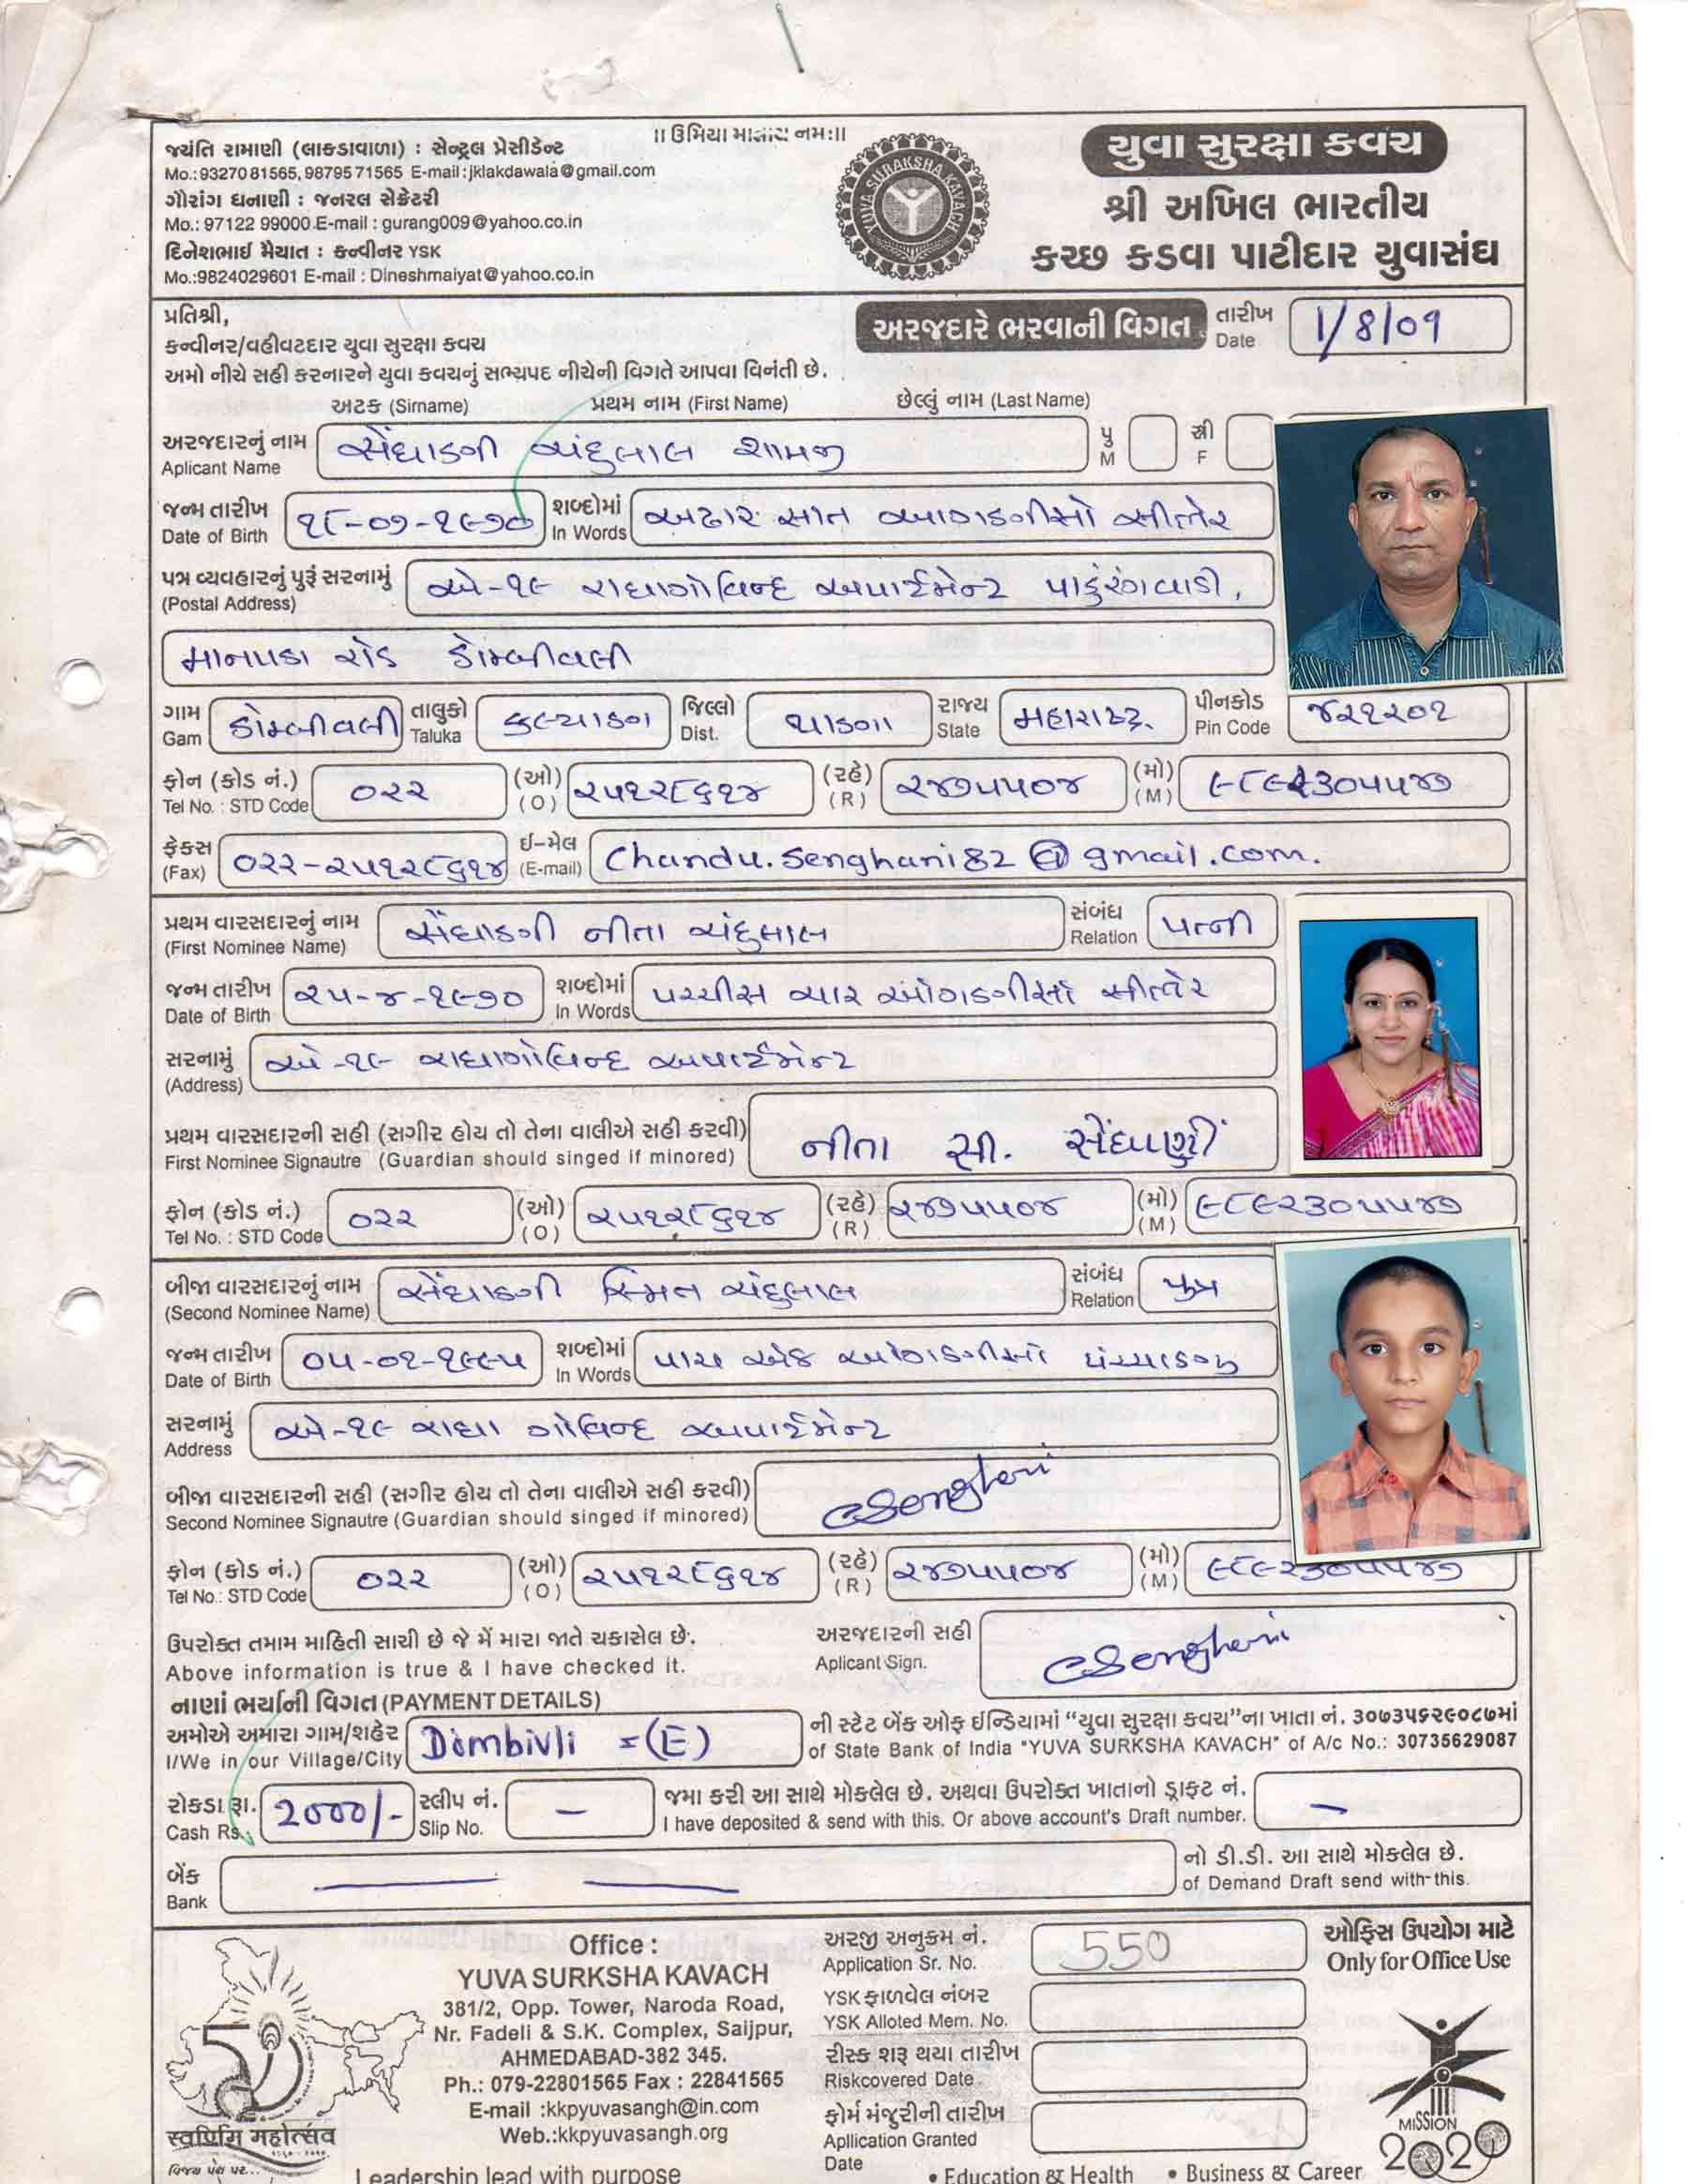 ॥ ઉમિયા માતાય નમઃ॥
જ્યંતિ રામાણી (લાકડાવાળા) : સેન્ટ્રલ પ્રેસીડેન્ટ
Mo.:93270 81565, 98795 71565 E-mail :jklakdawala@gmail.com
ગૌરાંગ ધનાણી : જનરલ સેક્રેટરી
Mo.: 97122 99000 E-mail : gurang009@yahoo.co.in
દિનેશભાઈ મૈયાત : કન્વીનર YSK
Mo.:9824029601 E-mail : Dineshmaiyat@yahoo.co.in
YUVA SURAKSHA KAVACH
યુવા સુરક્ષા કવચ
શ્રી અખિલ ભારતીય
કચ્છ કડવા પાટીદાર યુવાસંઘ
પ્રતિશ્રી,
કન્વીનર/વહીવટદાર યુવા સુરક્ષા કવચ
અમો નીચે સહી કરનારને યુવા કવચનું સભ્યપદ નીચેની વિગતે આપવા વિનંતી છે.
અરજદારે ભરવાની વિગત તારીખ Date 1/8/09
અટક (Sirname) પ્રથમ નામ (First Name) છેલ્લું નામ (Last Name)
અરજદારનું નામ Aplicant Name સેંઘાણી ચંદુલાલ શામજી પુ M સ્ત્રી F
જન્મ તારીખ Date of Birth ૧૮-૦૭-૧૯૭૦ શબ્દોમાં In Words અઢાર સાત ઓગણીસો સીત્તેર
પત્ર વ્યવહારનું પુરૂં સરનામું (Postal Address) એ-૧૯ રાધાગોવિન્દ અપાર્ટમેન્ટ પાડુંરંગવાડી,
માનપાડા રોડ ડોમ્બીવલી
ગામ Gam ડોમ્બીવલી તાલુકો Taluka કલ્યાણ જિલ્લો Dist. થાણા રાજ્ય State મહારાષ્ટ્ર પીનકોડ Pin Code ૪૨૧૨૦૧
ફોન (કોડ નં.) Tel No. : STD Code ૦૨૨ (ઓ) (O) ૨૫૧૨૮૬૧૪ (રહે) (R) ૨૪૭૫૫૦૪ (મો) (M) ૯૮૯૨૩૦૫૫૪૭
ફેક્સ (Fax) ૦૨૨-૨૫૧૨૮૬૧૪ ઈ-મેલ (E-mail) Chandu.senghani82@gmail.com.
પ્રથમ વારસદારનું નામ (First Nominee Name) સેંઘાણી નીતા ચંદુલાલ સંબંધ Relation પત્ની
જન્મ તારીખ Date of Birth ૨૫-૪-૧૯૭૦ શબ્દોમાં In Words પચ્ચીસ ચાર ઓગણીસો સીત્તેર
સરનામું (Address) એ-૧૯ રાધાગોવિન્દ અપાર્ટમેન્ટ
પ્રથમ વારસદારની સહી (સગીર હોય તો તેના વાલીએ સહી કરવી) નીતા સી. સેંઘાણી
First Nominee Signautre (Guardian should singed if minored)
ફોન (કોડ નં.) Tel No. : STD Code ૦૨૨ (ઓ) (O) ૨૫૧૨૮૬૧૪ (રહે) (R) ૨૪૭૫૫૦૪ (મો) (M) ૯૮૯૨૩૦૫૫૪૭
બીજા વારસદારનું નામ (Second Nominee Name) સેંઘાણી સ્મિત ચંદુલાલ સંબંધ Relation પુત્ર
જન્મ તારીખ Date of Birth ૦૫-૦૧-૧૯૯૫ શબ્દોમાં In Words પાચ એક ઓગણીસો પંચ્ચાણુ
સરનામું Address એ-૧૯ રાધા ગોવિન્દ અપાર્ટમેન્ટ
બીજા વારસદારની સહી (સગીર હોય તો તેના વાલીએ સહી કરવી) CSenghani
Second Nominee Signautre (Guardian should singed if minored)
ફોન (કોડ નં.) Tel No.: STD Code ૦૨૨ (ઓ) (O) ૨૫૧૨૮૬૧૪ (રહે) (R) ૨૪૭૫૫૦૪ (મો) (M) ૯૮૯૨૩૦૫૫૪૭
ઉપરોક્ત તમામ માહિતી સાચી છે જે મેં મારા જાતે ચકાસેલ છે. અરજદારની સહી
Above information is true & I have checked it. Aplicant Sign. CSenghani
નાણાં ભર્યાની વિગત (PAYMENT DETAILS)
અમોએ અમારા ગામ/શહેર Dombivli =(E) ની સ્ટેટ બેંક ઓફ ઈન્ડિયામાં “યુવા સુરક્ષા કવચ”ના ખાતા નં. ૩૦૭૩૫૬૨૯૦૮૭માં
I/We in our Village/City of State Bank of India "YUVA SURKSHA KAVACH" of A/c No.: 30735629087
રોકડા રૂા. 2000/- સ્લીપ નં. – જમા કરી આ સાથે મોકલેલ છે. અથવા ઉપરોક્ત ખાતાનો ડ્રાફટ નં. –
Cash Rs. Slip No. I have deposited & send with this. Or above account's Draft number.
બેંક Bank — — નો ડી.ડી. આ સાથે મોકલેલ છે.
of Demand Draft send with this.
50
સ્વર્ણિમ મહોત્સવ
Office :
YUVA SURKSHA KAVACH
381/2, Opp. Tower, Naroda Road,
Nr. Fadeli & S.K. Complex, Saijpur,
AHMEDABAD-382 345.
Ph.: 079-22801565 Fax : 22841565
E-mail :kkpyuvasangh@in.com
Web.:kkpyuvasangh.org
અરજી અનુક્રમ નં. Application Sr. No. 550
YSK ફાળવેલ નંબર
YSK Alloted Mem. No.
રીસ્ક શરૂ થયા તારીખ
Riskcovered Date
ફોર્મ મંજુરીની તારીખ
Apllication Granted
Date
ઓફિસ ઉપયોગ માટે
Only for Office Use
MISSION
2020
Leadership lead with purpose • Education & Health • Business & Career